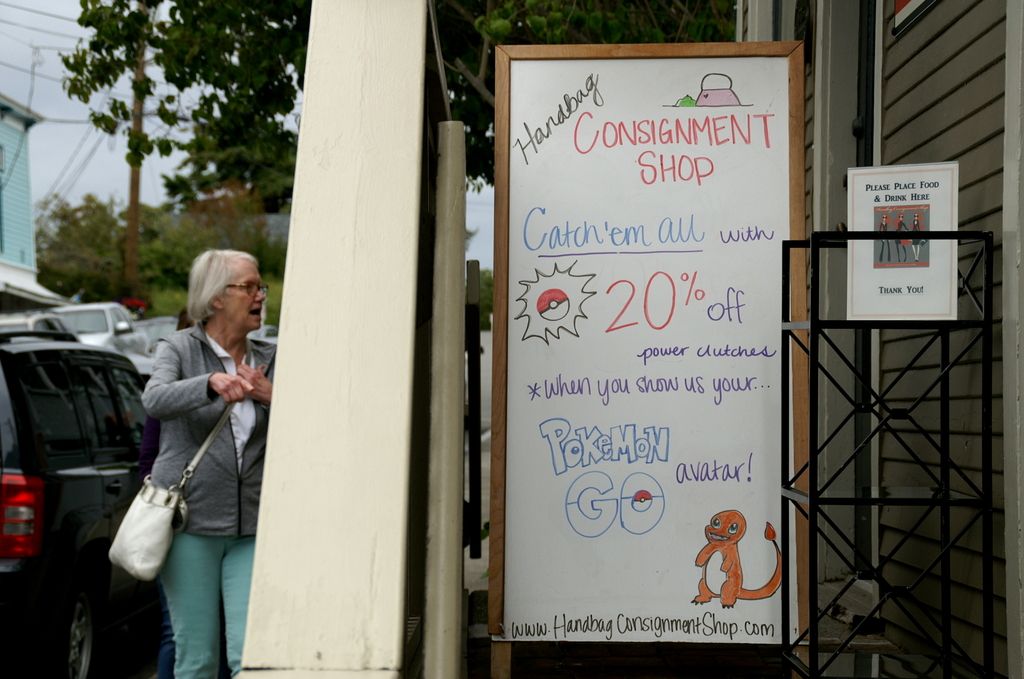 Handbag
CONSIGNMENT
SHOP
Catch'em all with
20% off
power clutches
*when you show us your...
POKEMON
GO
avatar!
www.HandbagConsignmentShop.com
PLEASE PLACE FOOD
& DRINK HERE
THANK YOU!